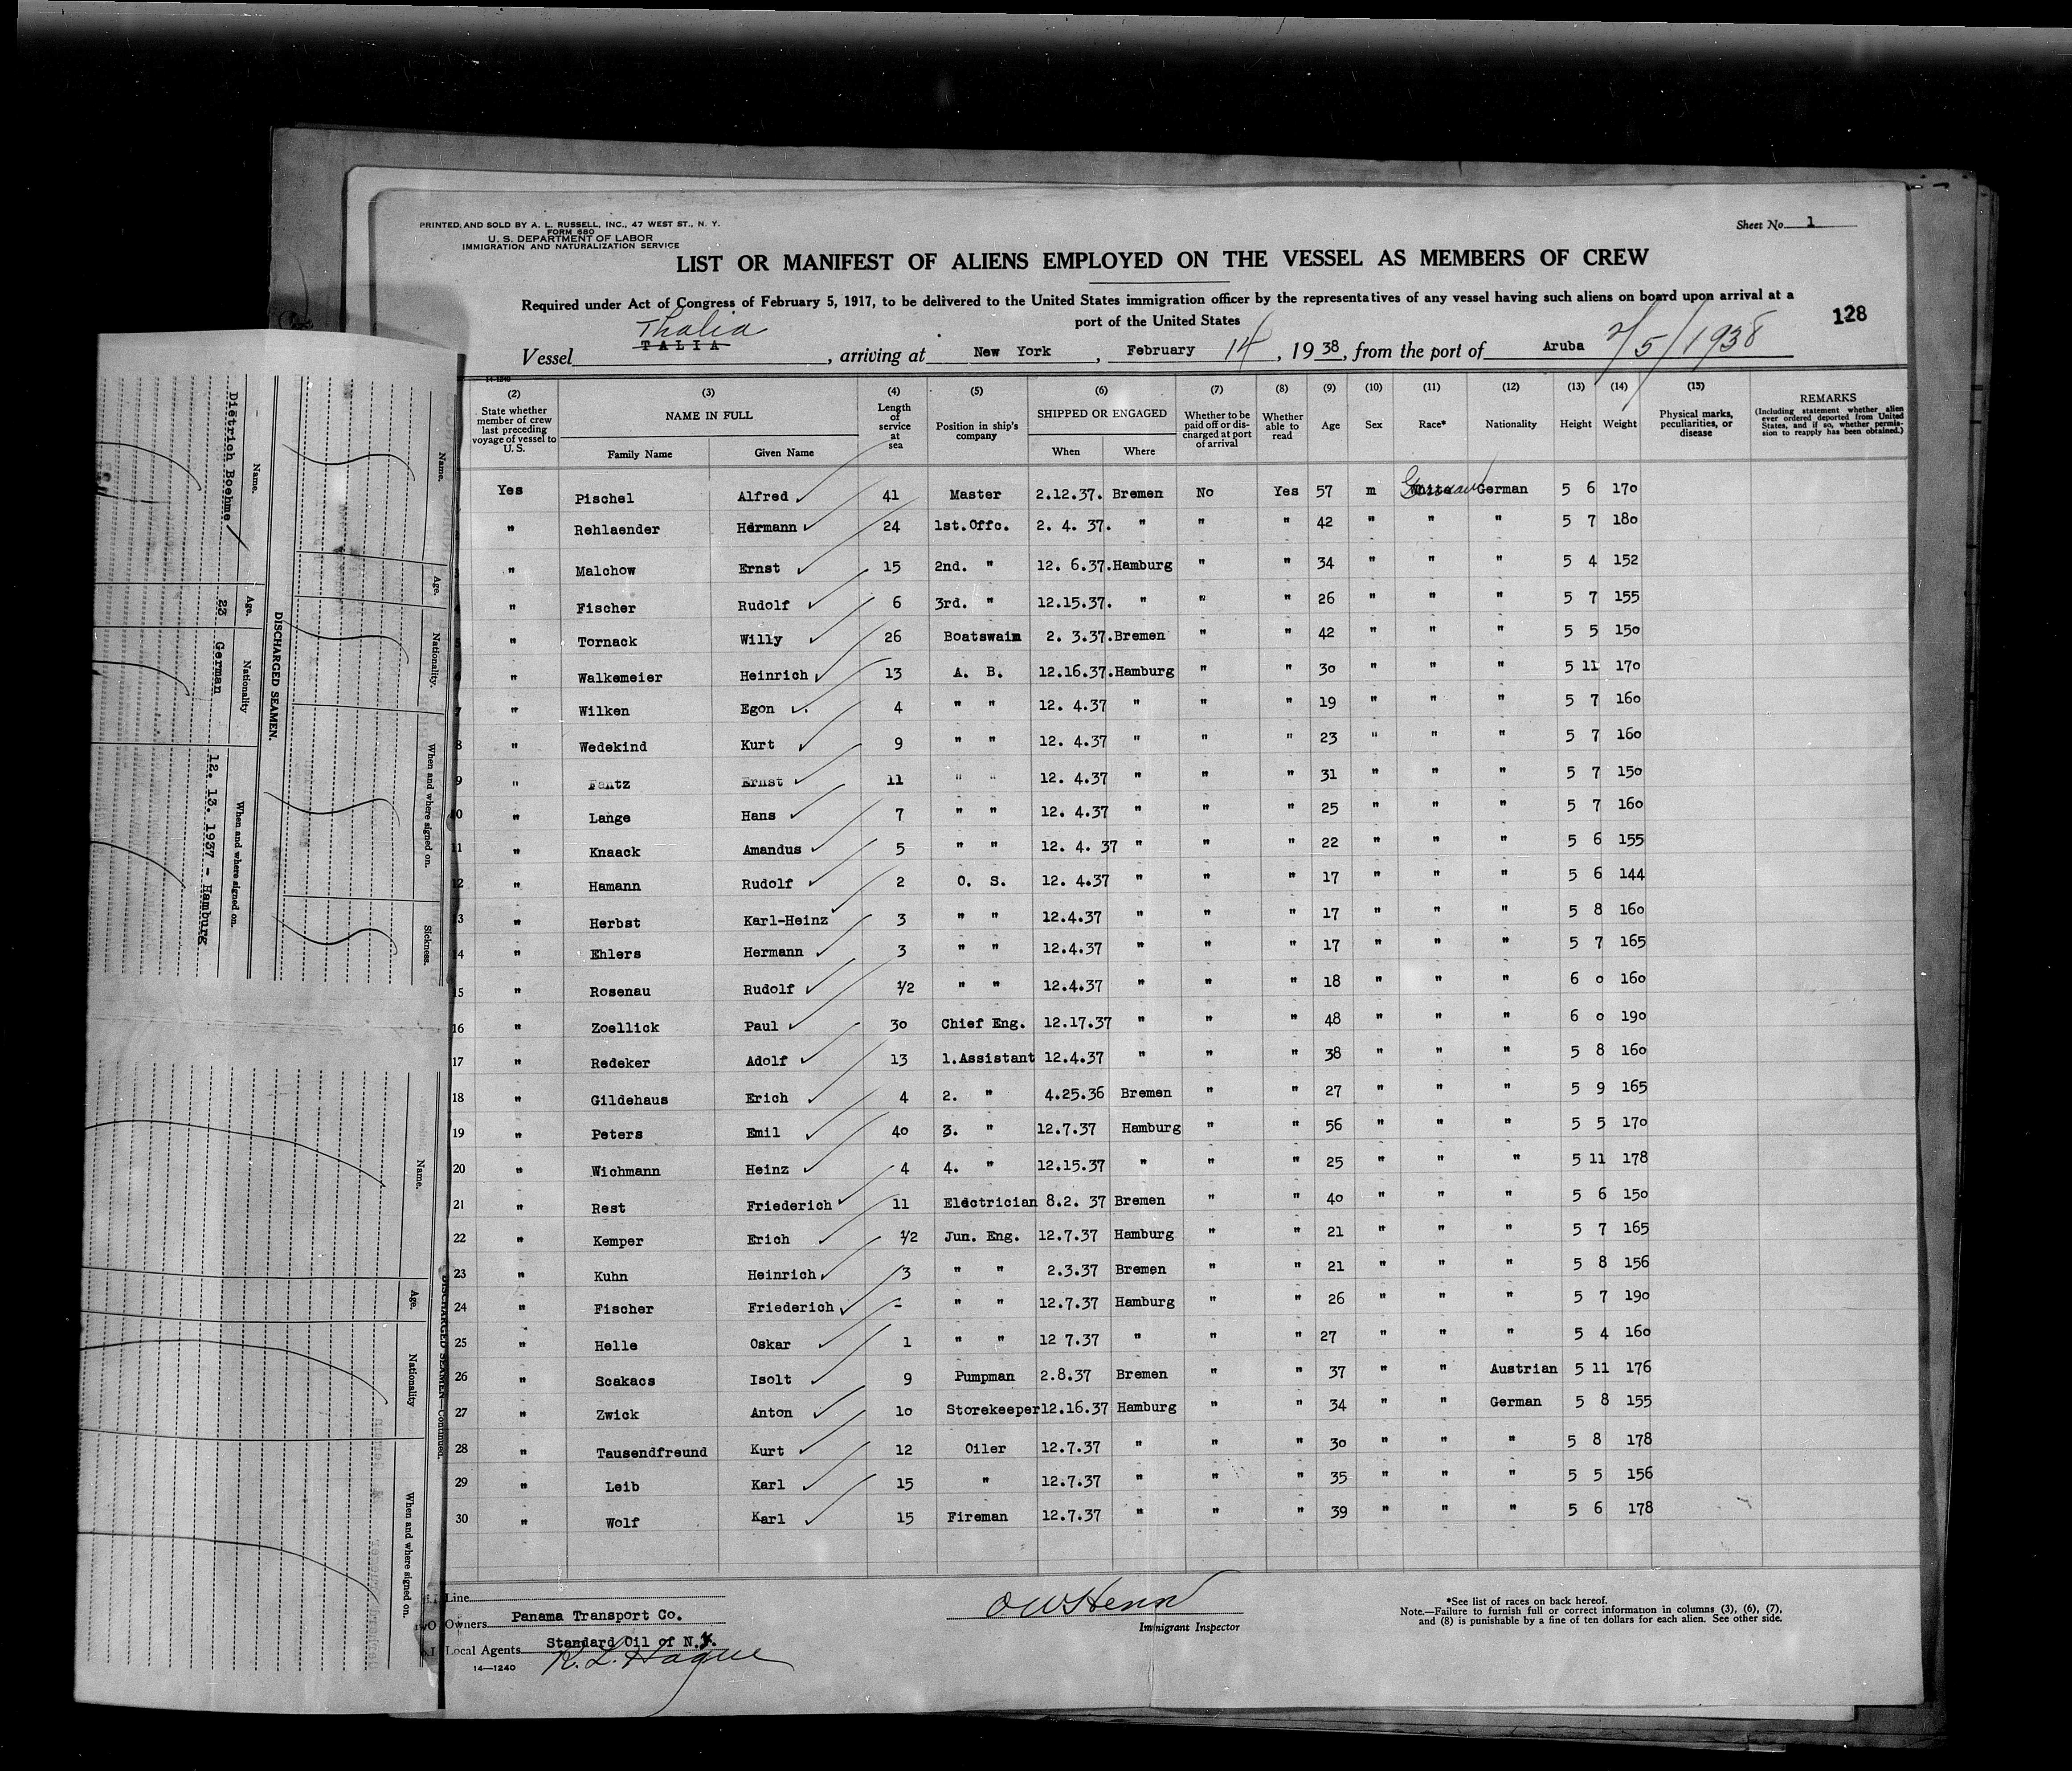 PRINTED AND SOLD BY A. L. RUSSELL, INC., 47 WEST ST., N. Y.
FORM 680
U. S. DEPARTMENT OF LABOR
IMMIGRATION AND NATURALIZATION SERVICE
Sheet No. 1
LIST OR MANIFEST OF ALIENS EMPLOYED ON THE VESSEL AS MEMBERS OF CREW
Required under Act of Congress of February 5, 1917, to be delivered to the United States immigration officer by the representatives of any vessel having such aliens on board upon arrival at a
port of the United States
128
Thalia
Vessel TALIA, arriving at New York, February 14, 1938, from the port of Aruba 2/5/1938
14-1240
(2) (3) (4) (5) (6) (7) (8) (9) (10) (11) (12) (13) (14) (15)
State whether member of crew last preceding voyage of vessel to U. S. NAME IN FULL Length of service at sea Position in ship's company SHIPPED OR ENGAGED Whether to be paid off or discharged at port of arrival Whether able to read Age Sex Race* Nationality Height Weight Physical marks, peculiarities, or disease REMARKS (Including statement whether alien ever ordered deported from United States, and if so, whether permission to reapply has been obtained.)
Family Name Given Name When Where
Yes Pischel Alfred 41 Master 2.12.37. Bremen No Yes 57 m White German German 5 6 170
" Rehlaender Hermann 24 1st.Offc. 2. 4. 37. " " " 42 " " " 5 7 180
" Malchow Ernst 15 2nd. " 12. 6.37. Hamburg " " 34 " " " 5 4 152
" Fischer Rudolf 6 3rd. " 12.15.37. " " " 26 " " " 5 7 155
5 " Tornack Willy 26 Boatswain 2. 3.37. Bremen " " 42 " " " 5 5 150
" Walkemeier Heinrich 13 A. B. 12.16.37. Hamburg " " 30 " " " 5 11 170
7 " Wilken Egon 4 " " 12. 4.37 " " " 19 " " " 5 7 160
8 " Wedekind Kurt 9 " " 12. 4.37 " " " 23 " " " 5 7 160
9 " Fantz Ernst 11 " " 12. 4.37 " " " 31 " " " 5 7 150
10 " Lange Hans 7 " " 12. 4.37 " " " 25 " " " 5 7 160
11 " Knaack Amandus 5 " " 12. 4. 37 " " " 22 " " " 5 6 155
12 " Hamann Rudolf 2 O. S. 12. 4.37 " " " 17 " " " 5 6 144
13 " Herbst Karl-Heinz 3 " " 12.4.37 " " " 17 " " " 5 8 160
14 " Ehlers Hermann 3 " " 12.4.37 " " " 17 " " " 5 7 165
15 " Rosenau Rudolf 1/2 " " 12.4.37 " " " 18 " " " 6 0 160
16 " Zoellick Paul 30 Chief Eng. 12.17.37 " " " 48 " " " 6 0 190
17 " Redeker Adolf 13 1.Assistant 12.4.37 " " " 38 " " " 5 8 160
18 " Gildehaus Erich 4 2. " 4.25.36 Bremen " " 27 " " " 5 9 165
19 " Peters Emil 40 3. " 12.7.37 Hamburg " " 56 " " " 5 5 170
20 " Wichmann Heinz 4 4. " 12.15.37 " " " 25 " " " 5 11 178
21 " Rest Friederich 11 Electrician 8.2. 37 Bremen " " 40 " " " 5 6 150
22 " Kemper Erich 1/2 Jun. Eng. 12.7.37 Hamburg " " 21 " " " 5 7 165
23 " Kuhn Heinrich 3 " " 2.3.37 Bremen " " 21 " " " 5 8 156
24 " Fischer Friederich - " " 12.7.37 Hamburg " " 26 " " " 5 7 190
25 " Helle Oskar 1 " " 12 7.37 " " " 27 " " " 5 4 160
26 " Scakacs Isolt 9 Pumpman 2.8.37 Bremen " " 37 " " Austrian 5 11 176
27 " Zwick Anton 10 Storekeeper 12.16.37 Hamburg " " 34 " " German 5 8 155
28 " Tausendfreund Kurt 12 Oiler 12.7.37 " " " 30 " " " 5 8 178
29 " Leib Karl 15 " 12.7.37 " " " 35 " " " 5 5 156
30 " Wolf Karl 15 Fireman 12.7.37 " " " 39 " " " 5 6 178
Line
Owners Panama Transport Co.
Local Agents Standard Oil of N.J.
R. L. Hague
14—1240
O W Henn
Immigrant Inspector
*See list of races on back hereof.
Note.—Failure to furnish full or correct information in columns (3), (6), (7),
and (8) is punishable by a fine of ten dollars for each alien. See other side.
DISCHARGED SEAMEN.
Name. Age. Nationality When and where signed on.
Dietrich Boehme 23 German 12. 13. 1937 - Hamburg
Name. Age. Nationality. When and where signed on. Sickness.
DISCHARGED SEAMEN—Continued.
Name. Age. Nationality When and where signed on.